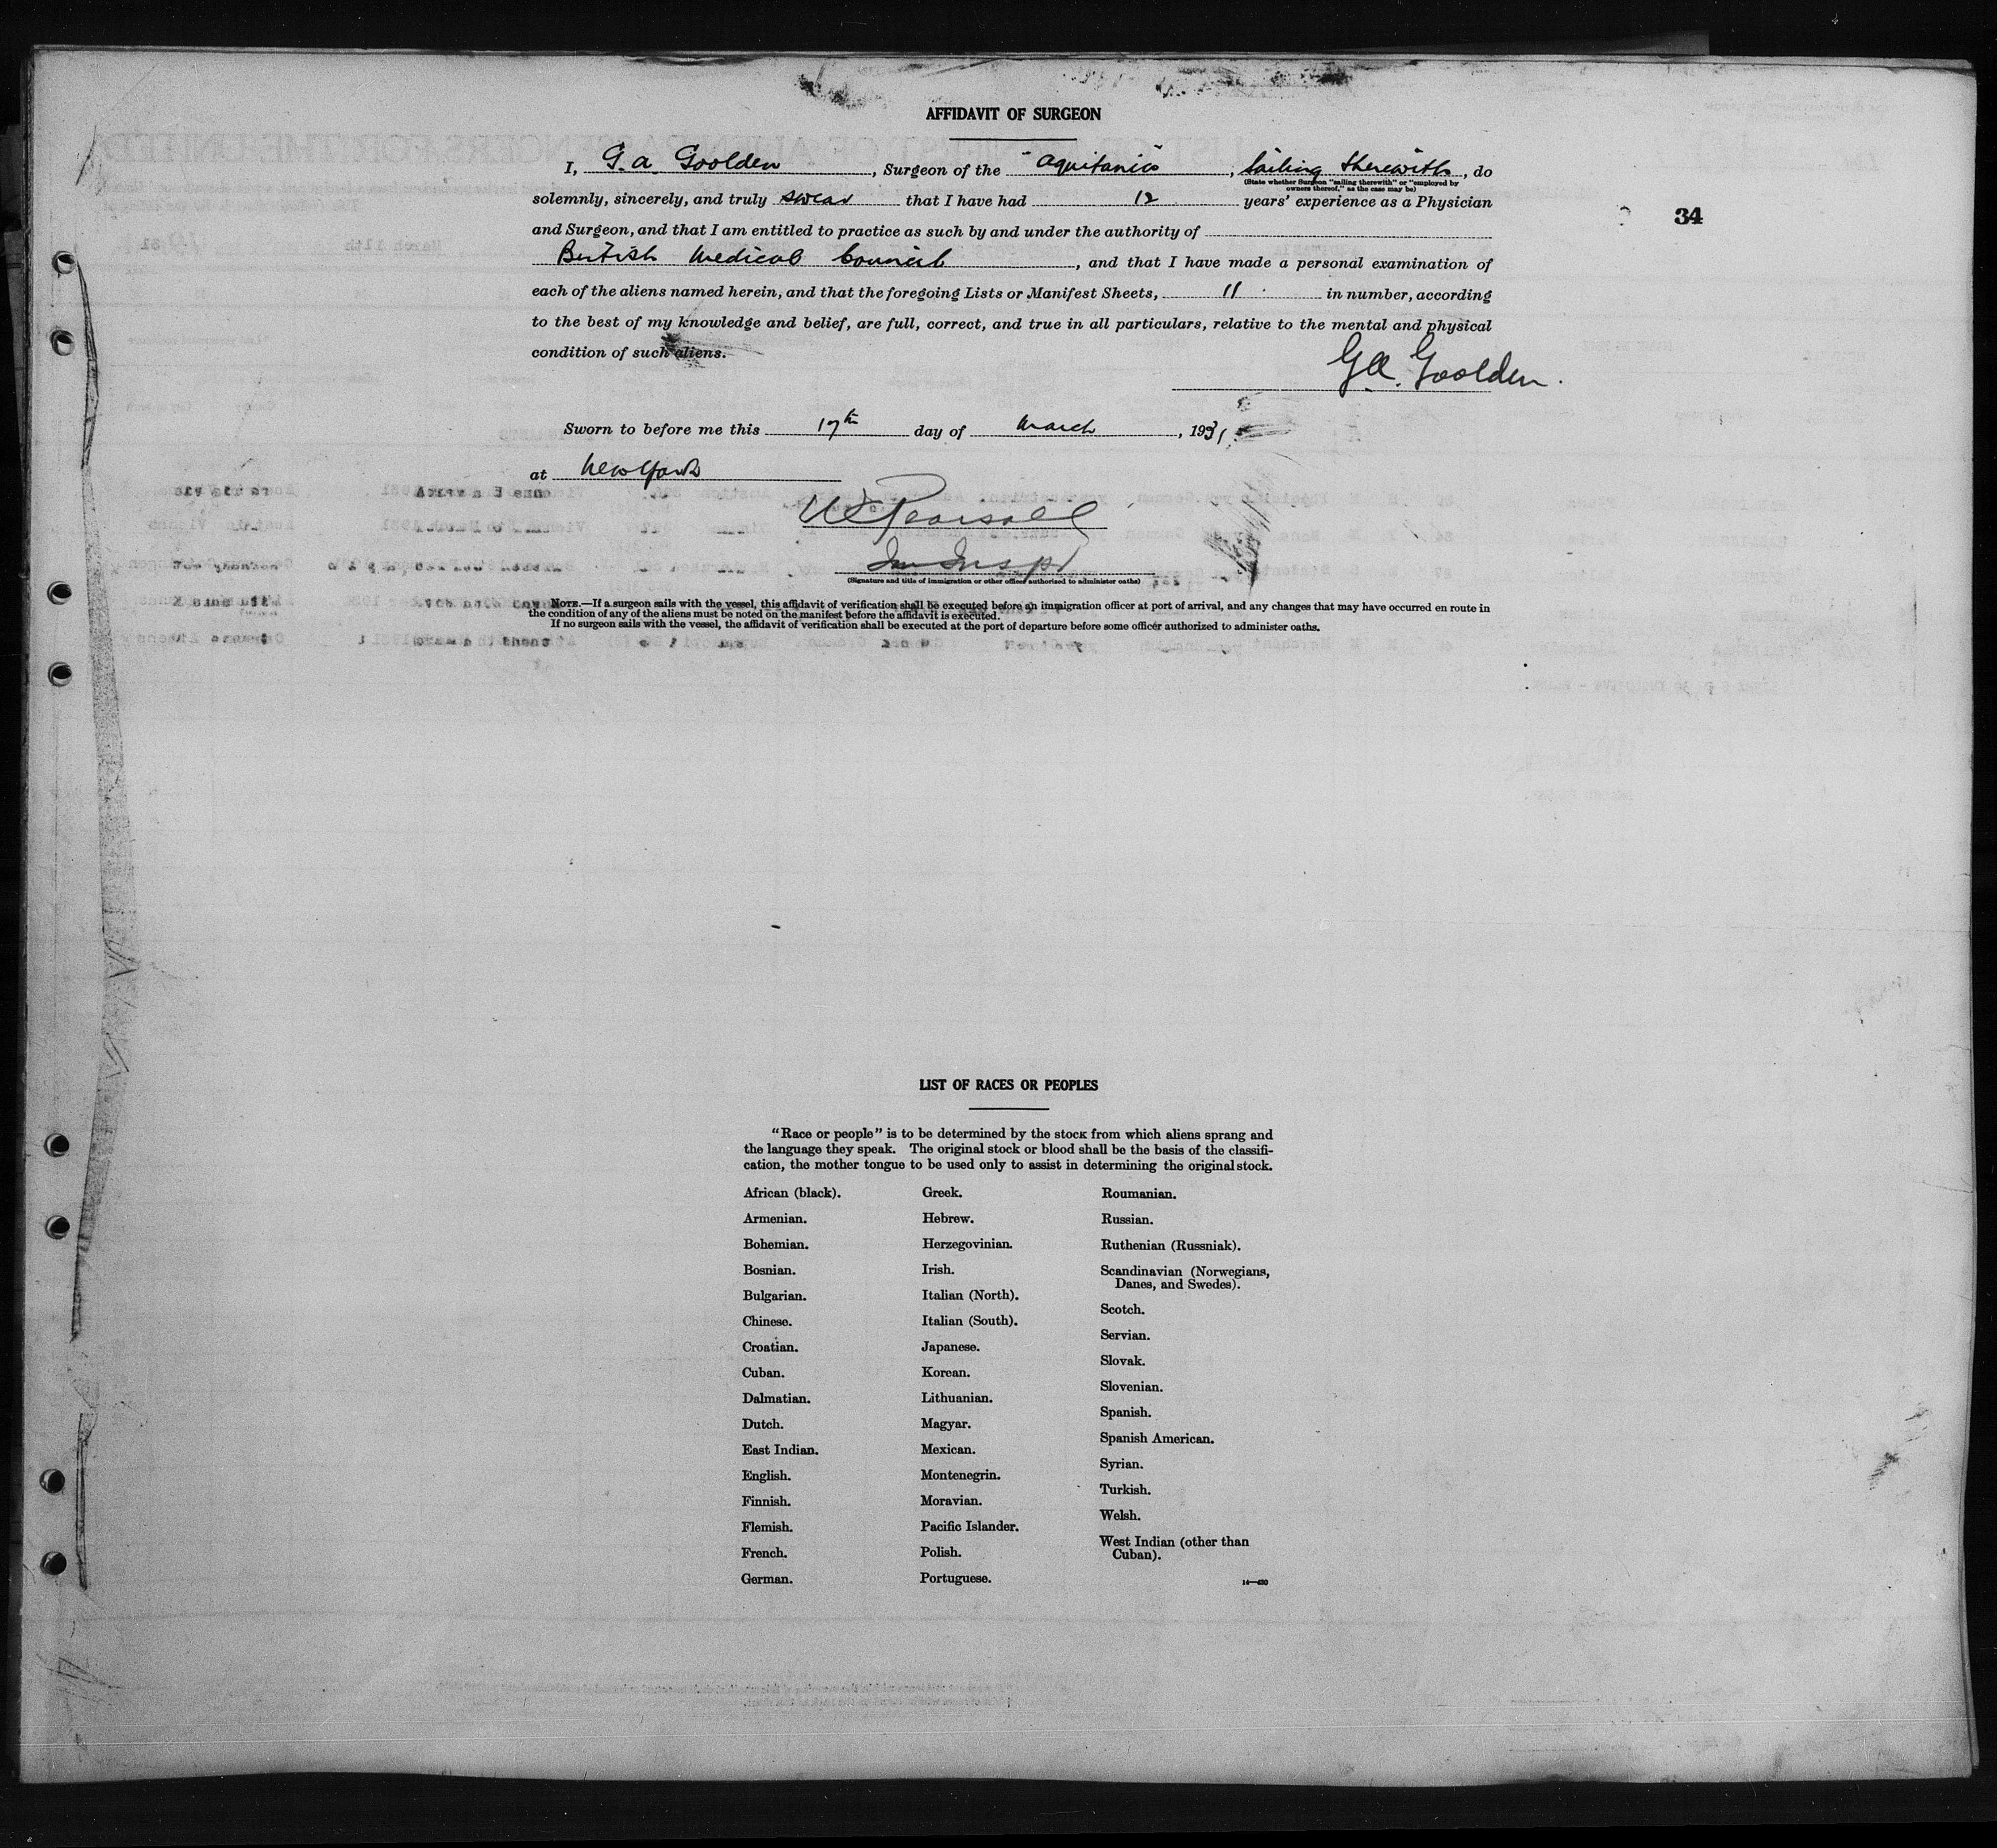 AFFIDAVIT OF SURGEON
I, G. A. Goolden, Surgeon of the "Aquitania", Sailing therewith, do
(State whether Surgeon "sailing therewith" or "employed by
owners thereof," as the case may be)
solemnly, sincerely, and truly swear that I have had 12 years' experience as a Physician
34
and Surgeon, and that I am entitled to practice as such by and under the authority of
British Medical Council, and that I have made a personal examination of
each of the aliens named herein, and that the foregoing Lists or Manifest Sheets, 11 in number, according
to the best of my knowledge and belief, are full, correct, and true in all particulars, relative to the mental and physical
condition of such aliens.
G.A. Goolden.
Sworn to before me this 17th day of March, 1931
at New York
Pearsall
Imm Inspr
(Signature and title of immigration or other officer authorized to administer oaths)
NOTE.—If a surgeon sails with the vessel, this affidavit of verification shall be executed before an immigration officer at port of arrival, and any changes that may have occurred en route in
the condition of any of the aliens must be noted on the manifest before the affidavit is executed.
If no surgeon sails with the vessel, the affidavit of verification shall be executed at the port of departure before some officer authorized to administer oaths.
LIST OF RACES OR PEOPLES
"Race or people" is to be determined by the stock from which aliens sprang and
the language they speak. The original stock or blood shall be the basis of the classifi-
cation, the mother tongue to be used only to assist in determining the original stock.
African (black).
Armenian.
Bohemian.
Bosnian.
Bulgarian.
Chinese.
Croatian.
Cuban.
Dalmatian.
Dutch.
East Indian.
English.
Finnish.
Flemish.
French.
German.
Greek.
Hebrew.
Herzegovinian.
Irish.
Italian (North).
Italian (South).
Japanese.
Korean.
Lithuanian.
Magyar.
Mexican.
Montenegrin.
Moravian.
Pacific Islander.
Polish.
Portuguese.
Roumanian.
Russian.
Ruthenian (Russniak).
Scandinavian (Norwegians,
Danes, and Swedes).
Scotch.
Servian.
Slovak.
Slovenian.
Spanish.
Spanish American.
Syrian.
Turkish.
Welsh.
West Indian (other than
Cuban).
14—430